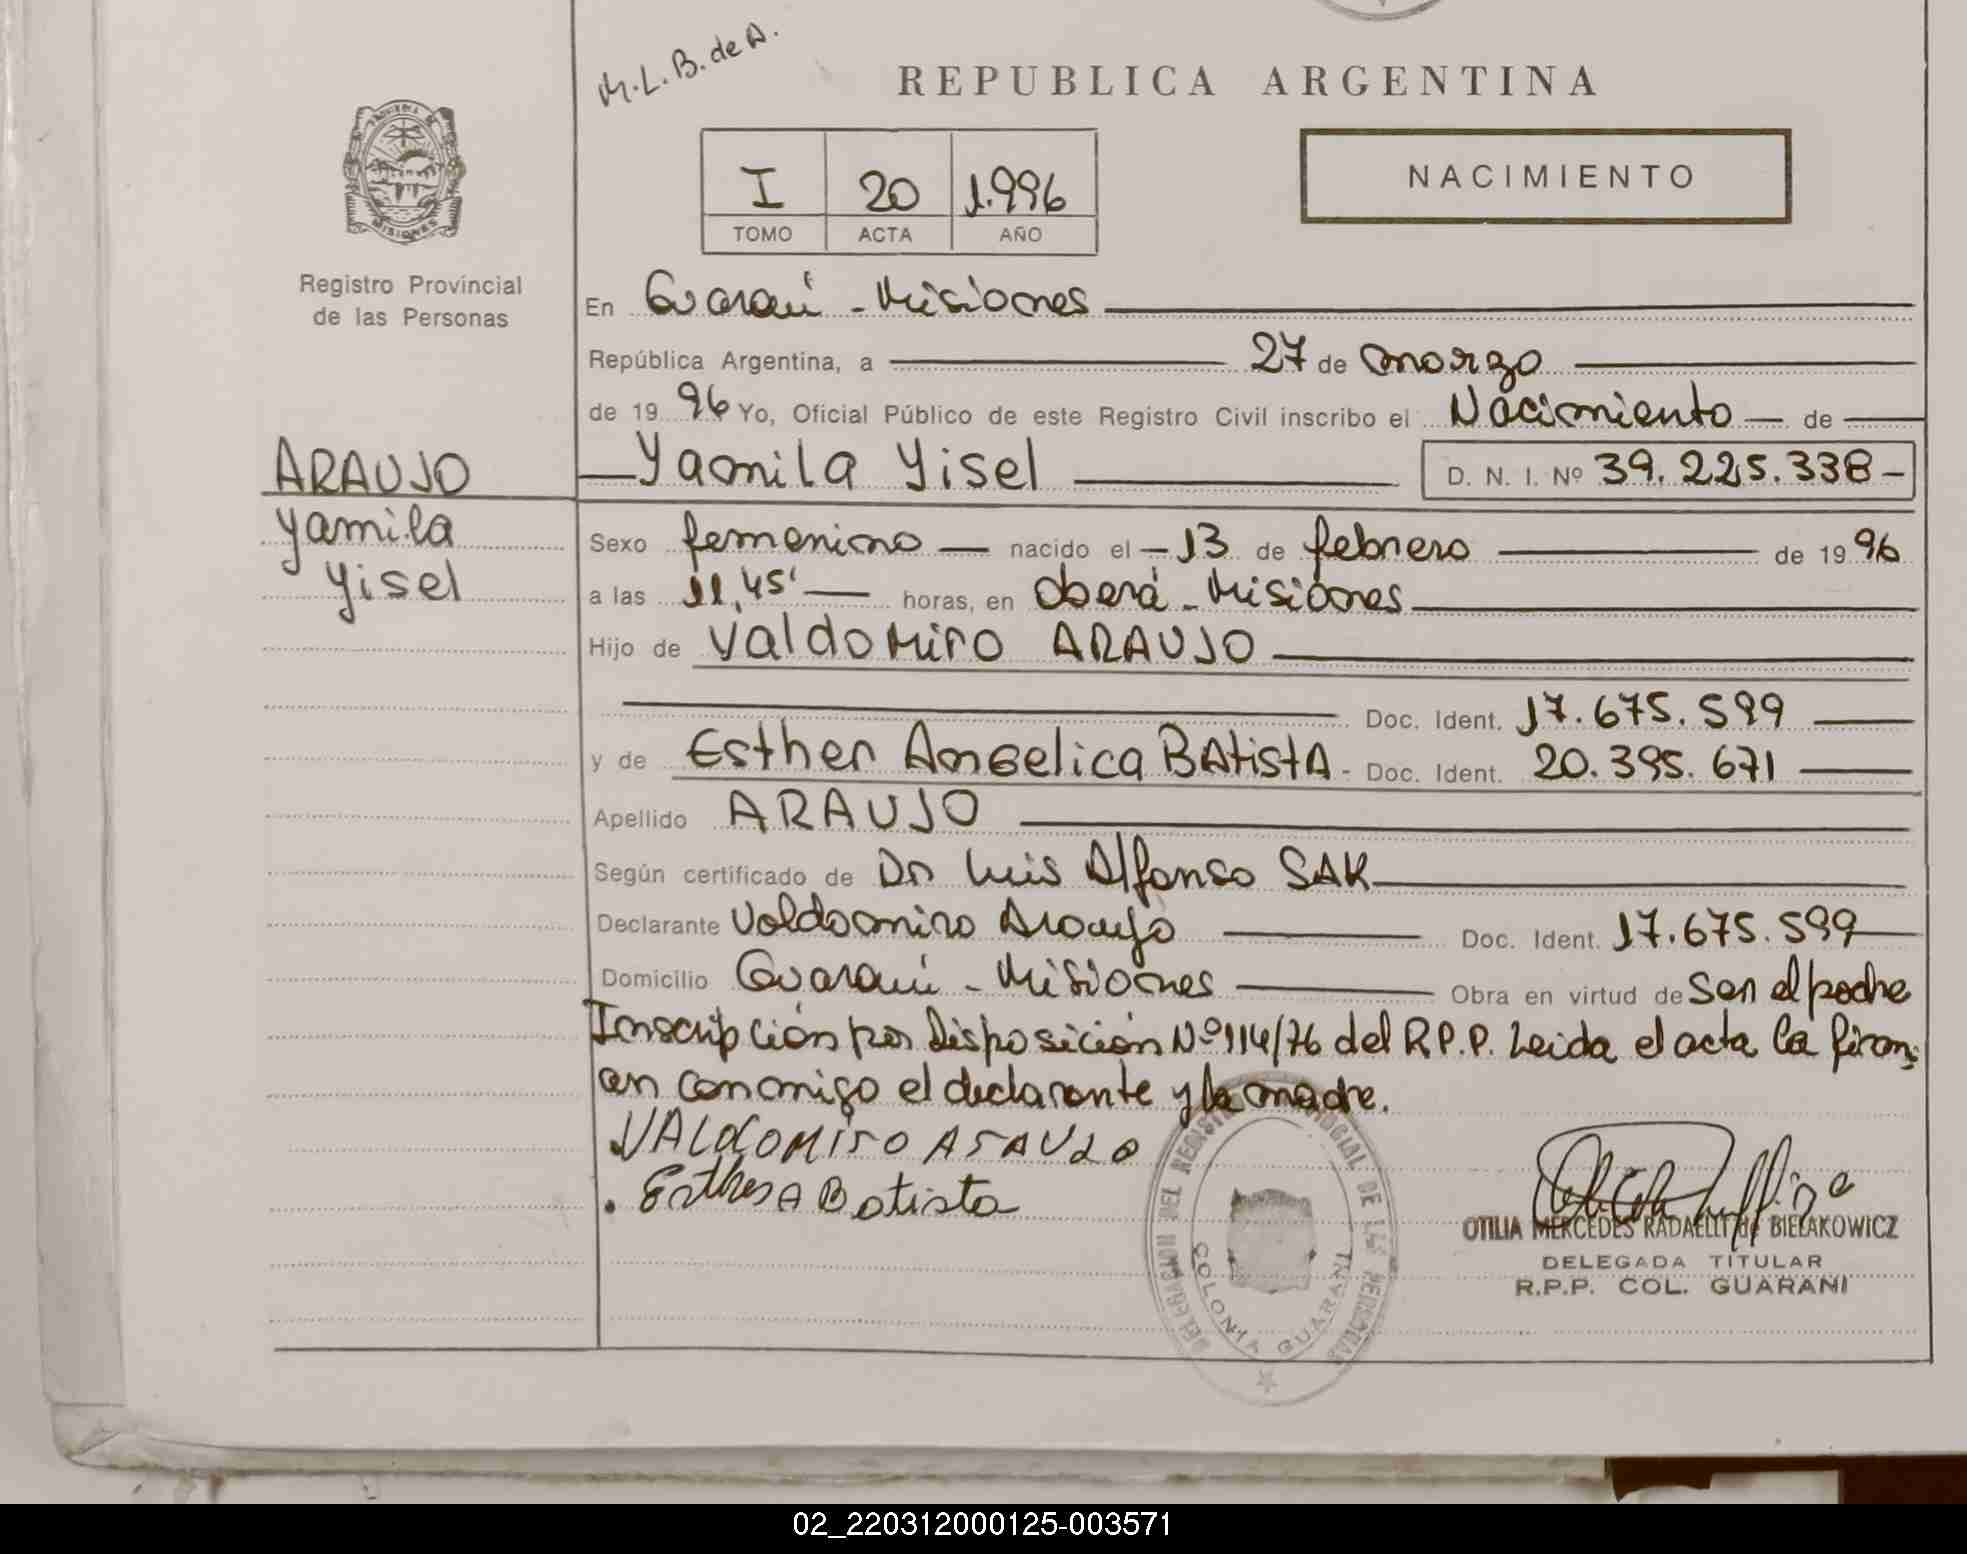 M.L.B. de A.
REPUBLICA ARGENTINA
PROVINCIA DE MISIONES
I 20 1.996
TOMO ACTA AÑO
NACIMIENTO
Registro Provincial
de las Personas
En Guaraní - Misiones
República Argentina, a 27 de marzo
de 19 96 Yo, Oficial Público de este Registro Civil inscribo el Nacimiento de
Yamila Yisel D. N. I. Nº 39.225.338-
ARAUJO
Yamila
Yisel
Sexo femenino nacido el 13 de febrero de 19 96
a las 11,45' horas, en Oberá - Misiones
Hijo de Valdomiro ARAUJO
Doc. Ident. 17.675.599
y de Esther Angelica BAtistA - Doc. Ident. 20.395.671
Apellido ARAUJO
Según certificado de Dr Luis Alfonso SAK
Declarante Valdomiro Araujo Doc. Ident. 17.675.599
Domicilio Guaraní - Misiones Obra en virtud de Ser el padre
Inscripción por Disposición Nº 114/76 del R.P.P. Leida el acta la firm-
an conmigo el declarante y la madre.
VALdOMiro ArAUJo
Esther A Batista
DELEGACION DEL REGISTRO PROVINCIAL DE LAS PERSONAS
COLONIA GUARANI
OTILIA MERCEDES RADAELLI de BIELAKOWICZ
DELEGADA TITULAR
R.P.P. COL. GUARANI
02_220312000125-003571